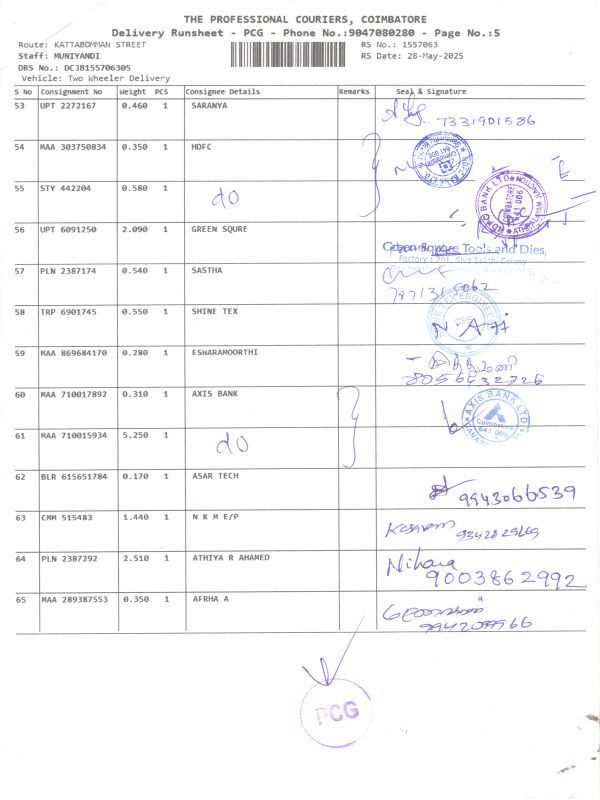 THE PROFESSIONAL COURIERS, COIMBATORE
Delivery Runsheet - PCG - Phone No.:9047080280 - Page No.:5
Route: KATTABOMMAN STREET RS No.: 1557063
Staff: MUNIYANDI RS Date: 28-May-2025
DRS No.: DCJB155706305
Vehicle: Two Wheeler Delivery
S No Consignment No Weight PCS Consignee Details Remarks Seal & Signature
53 UPT 2272167 0.460 1 SARANYA
7331901586
54 MAA 303750834 0.350 1 HDFC
55 STY 442204 0.580 1 do
HDFC BANK LTD
COIMBATORE
641 006
56 UPT 6091250 2.090 1 GREEN SQURE
Green Square Tools and Dies,
57 PLN 2387174 0.540 1 SASTHA
58 TRP 6901745 0.550 1 SHINE TEX
CBE
59 MAA 869684170 0.280 1 ESWARAMOORTHI
8056432726
60 MAA 710017892 0.310 1 AXIS BANK
AXIS BANK LTD
Coimbatore
641 006
61 MAA 710015934 5.250 1 do
62 BLR 615651784 0.170 1 ASAR TECH
9943066539
63 CMM 515483 1.440 1 N K M E/P
64 PLN 2387292 2.510 1 ATHIYA R AHAMED
Nihara
9003862992
65 MAA 289387553 0.350 1 AFRHA A
PCG